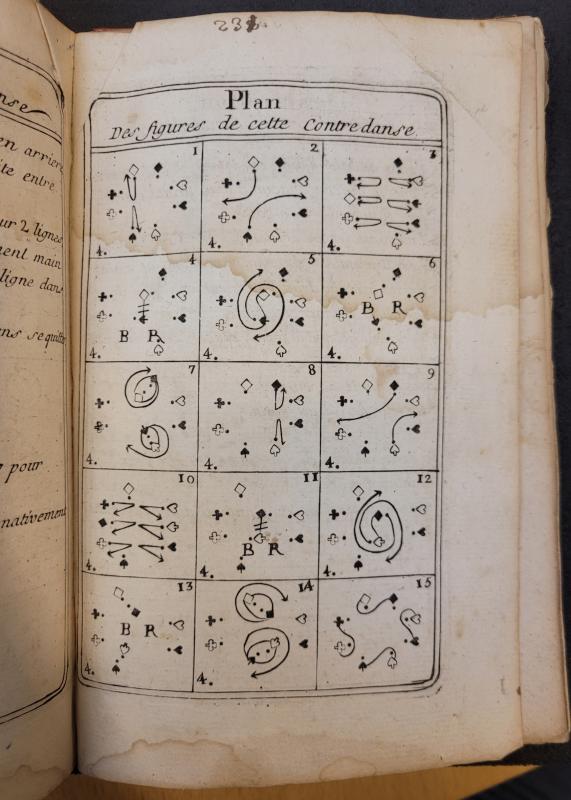 nse
en arrier
ite entre
ur 2 lignes
ment main
ligne dans
ns se quitte
pour
nativement
23
Plan
Des figures de cette Contredanse
1 2 3
4. 4. 4.
4 5 6
B R
B R
4. 4. 4.
7 8 9
4. 4. 4.
10 11 12
B R
4. 4. 4.
13 14 15
B R
4. 4.